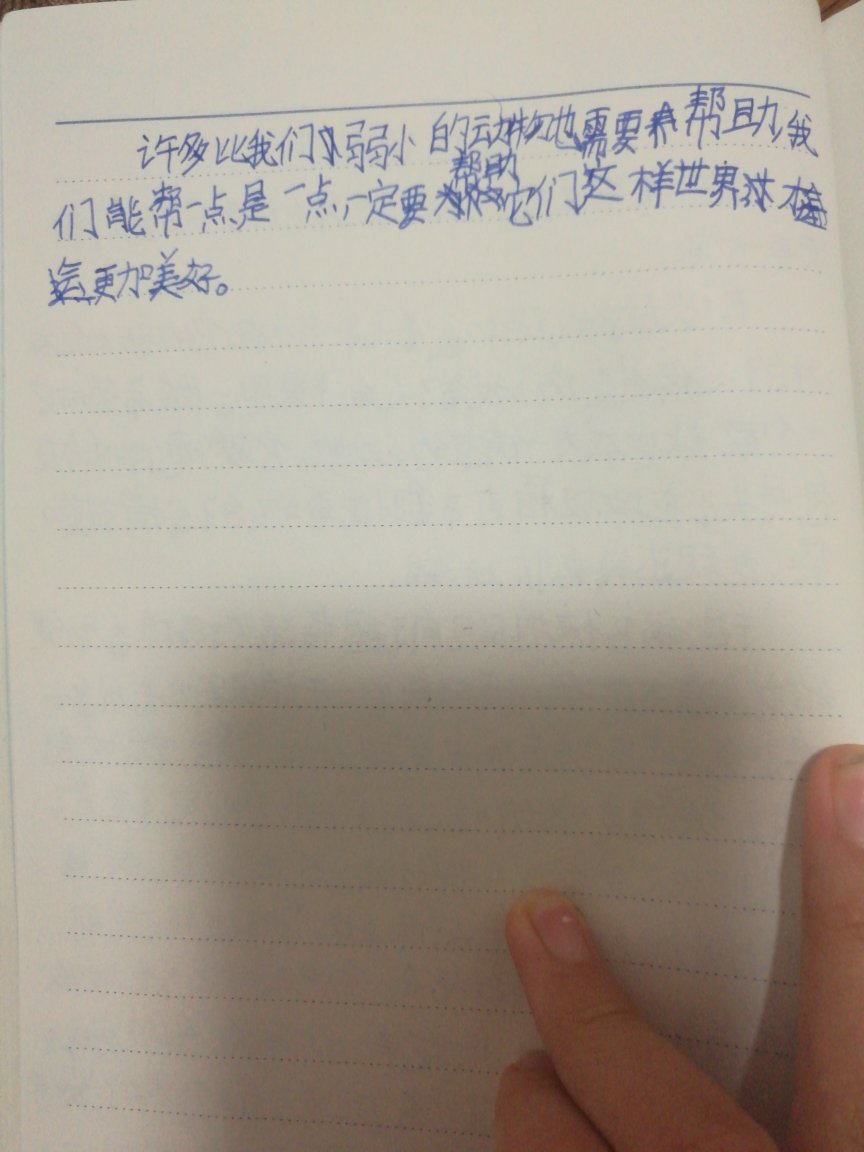 许多比我们弱小的动物也需要帮助,我
们能帮一点是一点,一定要帮助它们这样世界才会
更加美好。